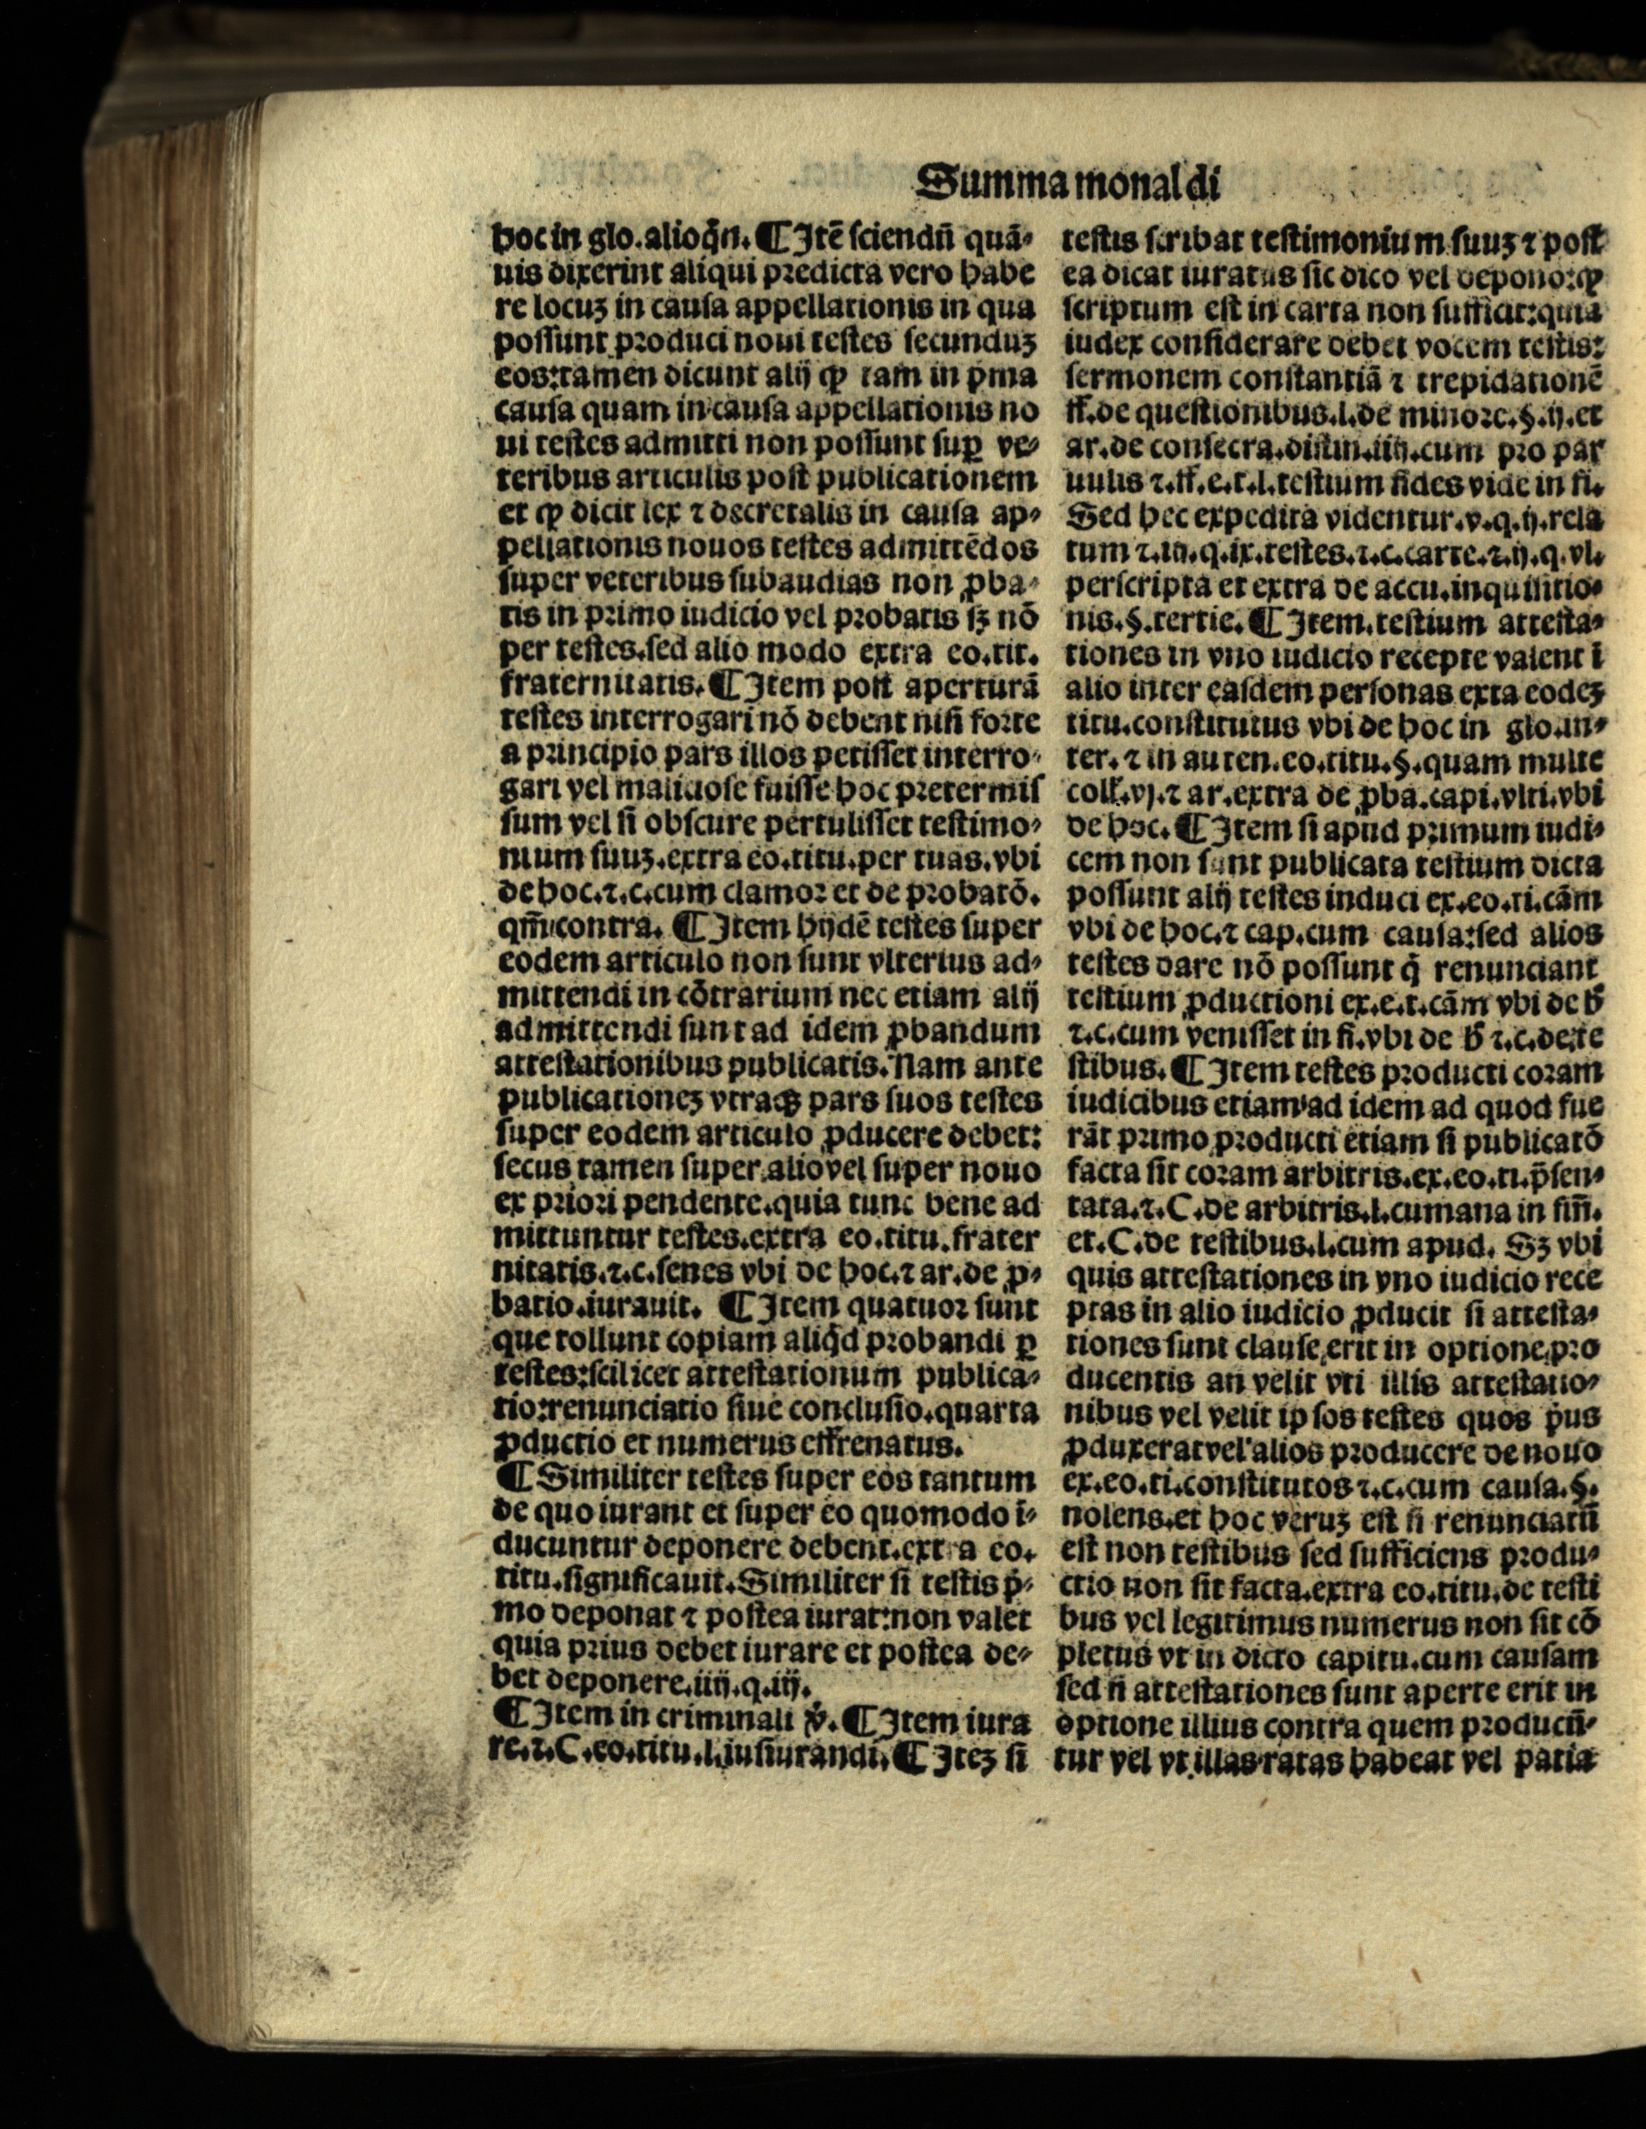 Summa monaldi
hoc in glo. alioq̃n. ¶ Itẽ sciendũ quã⸗
uis dixerint aliqui predicta vero habe
re locuȝ in causa appellationis in qua
possunt produci noui testes secunduȝ
eos: tamen dicunt alij ꝙ tam in p̃ma
causa quam in causa appellationis no
ui testes admitti non possunt suꝑ ve⸗
teribus articulis post publicationem
et ꝙ dicit lex ⁊ decretalis in causa ap⸗
pellationis nouos testes admittẽdos
super veteribus subaudias non ꝓba⸗
tis in primo iudicio vel probatis sȝ nõ
per testes. sed alio modo extra eo. tit.
fraternitatis. ¶ Item post aperturã
testes interrogari nõ debent nisi forte
a principio pars illos petisset interro⸗
gari vel maliciose fuisse hoc pretermis
sum vel si obscure pertulisset testimo⸗
nium suuȝ. extra eo. titu. per tuas. vbi
de hoc. ⁊. c. cum clamor et de probatõ.
qm̃ contra. ¶ Item hijdẽ testes super
eodem articulo non sunt vlterius ad⸗
mittendi in cõtrarium nec etiam alij
admittendi sunt ad idem ꝓbandum
attestationibus publicatis. Nam ante
publicationeȝ vtraqȝ pars suos testes
super eodem articulo ꝓducere debet:
secus tamen super alio vel super nouo
ex priori pendente. quia tunc bene ad
mittuntur testes. extra eo. titu. frater
nitatis. ⁊. c. senes vbi de hoc. ⁊ ar. de ꝓ⸗
batio. iurauit. ¶ Item quatuor sunt
que tollunt copiam aliq̃d probandi ꝑ
testes: scilicet attestationum publica⸗
tio: renunciatio siue conclusio. quarta
ꝓductio et numerus effrenatus.
¶ Similiter testes super eos tantum
de quo iurant et super eo quomodo ĩ⸗
ducuntur deponere debent. extra eo.
titu. significauit. Similiter si testis p̃⸗
mo deponat ⁊ postea iurat: non valet
quia prius debet iurare et postea de⸗
bet deponere. iiij. q. iij.
¶ Item in criminali ṽ. ¶ Item iura
re. ⁊. C. eo. titu. l. iusiurandi. ¶ Iteȝ si
testis scribat testimonium suuȝ ⁊ post
ea dicat iuratus sic dico vel depono: ꝙ
scriptum est in carta non sufficit: quia
iudex considerare debet vocem testis:
sermonem constantiã ⁊ trepidationẽ
ff. de questionibus. l. de minore. §. ij. et
ar. de consecra. distin. iiij. cum pro par
uulis ⁊. ff. e. t. l. testium fides vide in fi.
Sed hec expedita videntur. v. q. ij. rela
tum ⁊. iij. q. ix. testes. ⁊. c. carte. ⁊. ij. q. vl.
perscripta et extra de accu. inquisitio⸗
nis. §. tertie. ¶ Item. testium attesta⸗
tiones in vno iudicio recepte valent ĩ
alio inter easdem personas exta eodeȝ
titu. constitutus vbi de hoc in glo. in⸗
ter. ⁊ in auten. eo. titu. §. quam multe
coll. vj. ⁊ ar. extra de ꝓba. capi. vlti. vbi
de hoc. ¶ Item si apud primum iudi⸗
cem non sunt publicata testium dicta
possunt alij testes induci ex. eo. ti. cãm
vbi de hoc. ⁊ cap. cum causa: sed alios
testes dare nõ possunt q̃ renunciant
testium ꝓductioni ex. e. t. cãm vbi de h̃
⁊. c. cum venisset in fi. vbi de h̃ ⁊. c. de te
stibus. ¶ Item testes producti coram
iudicibus etiam ad idem ad quod fue
rãt primo producti etiam si publicatõ
facta sit coram arbitris. ex. eo. ti. p̃sen⸗
tata. ⁊. C. de arbitris. l. cumana in fiñ.
et. C. de testibus. l. cum apud. Sȝ vbi
quis attestationes in vno iudicio rece
ptas in alio iudicio ꝓducit si attesta⸗
tiones sunt clause, erit in optione, pro
ducentis an velit vti illis attestatio⸗
nibus vel velit ipsos testes quos p̃us
ꝓduxerat vel alios producere de nouo
ex. eo. ti. constitutos ⁊. c. cum causa. §.
nolens. et hoc veruȝ est si renunciatũ
est non testibus sed sufficiens produ⸗
ctio non sit facta. extra eo. titu. de testi
bus vel legitimus numerus non sit cõ
pletus vt in dicto capitu. cum causam
sed si attestationes sunt aperte erit in
optione illius contra quem producũ⸗
tur vel vt illas ratas habeat vel patia